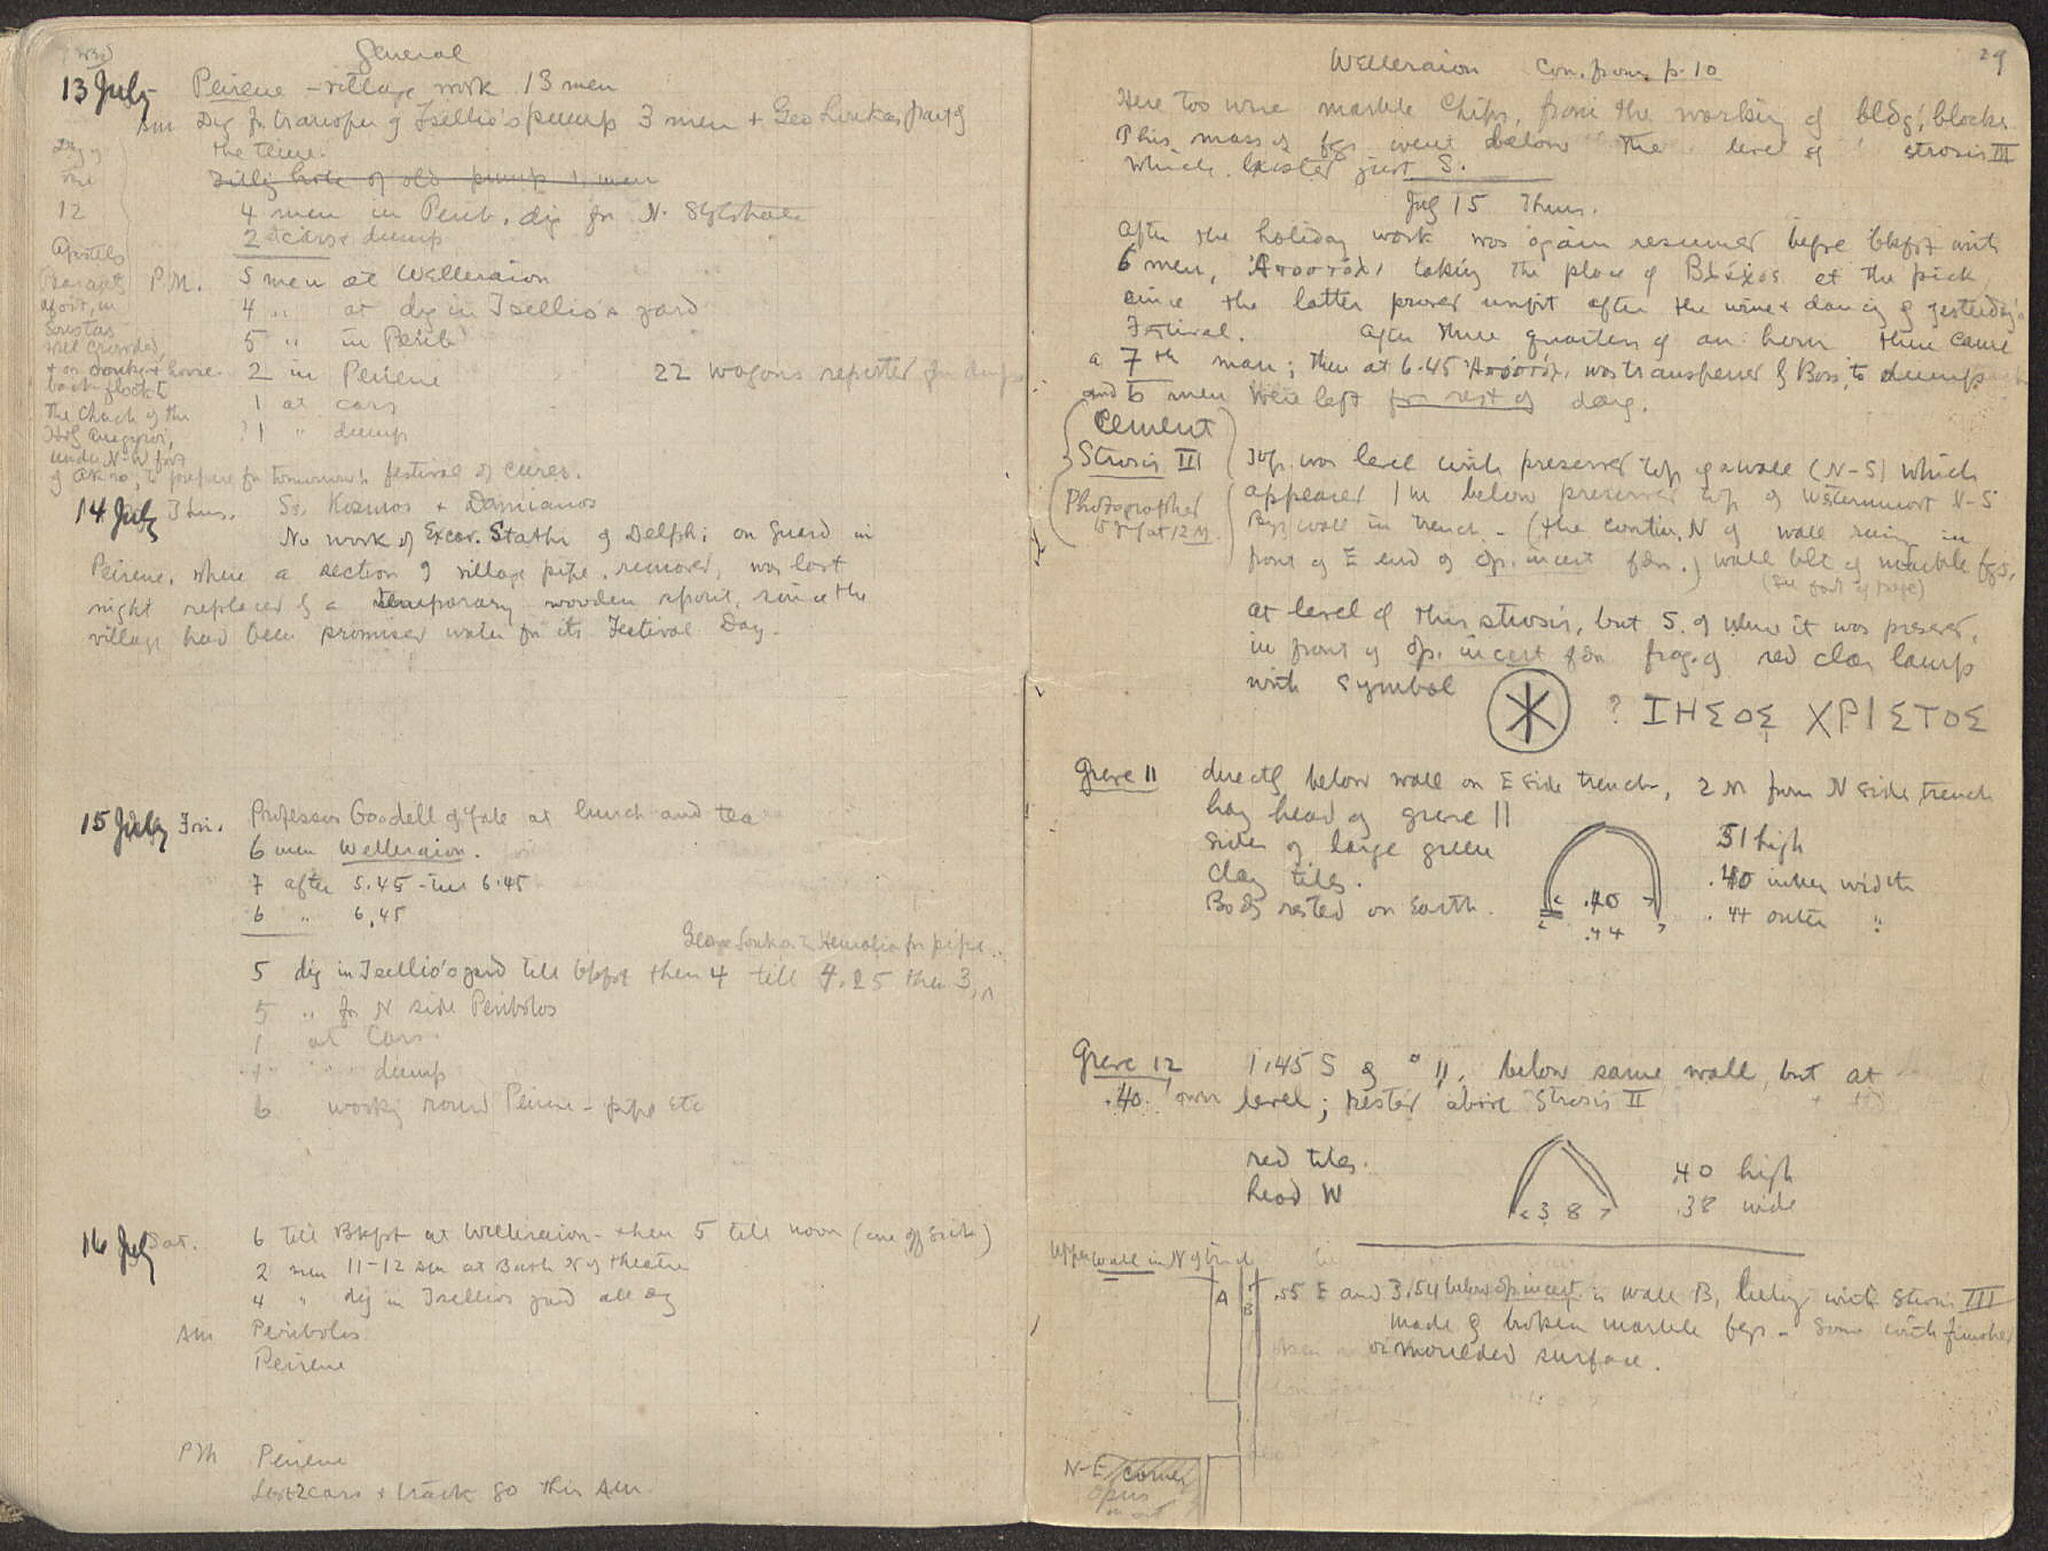 General
(Wed)
13 July
Peirene - village work 13 men
AM Dig for transfer of Tsellio's pump 3 men + Geo Loukas, part of
the time.
Fill hole of old pump 4 men
4 men in Perib. dig for N. Stylobate
2 at cars + dump
Day of
the
12
Apostles
P.M. 5 men at Welleraion
4 " at dig in Tsellio's yard
5 " in Perib
2 in Peirene 22 wagons
1 at cars
1 " dump
+ on donkey + horse
back flock to
the Church of the
Holy Anargyroi,
under N-W foot
of Akro, to prepare for tomorrow's festival of cures.
14 July Thurs. Ss. Kosmos + Damianos
No work of Excav. Stathi of Delphi on guard in
Peirene, where a section of village pipe, removed, was last
night replaced by a temporary wooden spout, since the
village had been promised water for its Festival Day.
15 July Fri. Professor Goodell of Yale at lunch and tea
6 men Welleraion.
7 after 5.45 - till 6.45
6 " 6.45
George Loukas to Hexamilia for pipe
5 dig in Tsellio's yard till bkfst then 4 till 4.25 then 3
5 " for N side Peribolos
1 at Cars
1 " dump
6 working round Peirene - pipe etc
16 July Sat. 6 till Bkfst at Welleraion - then 5 till noon (one off sick)
2 men 11-12 AM at Bath N of theatre
4 " dig in Tsellios yard all day
AM Peribolos
Peirene
PM Peirene
2 cars + track 80 this AM
29
Welleraion Con. from p. 10
Here too were marble chips, from the working of bldg. blocks
This mass of fgs went below the level of strosis III
which existed just S.
July 15 Thurs.
After the holiday work was again resumed before bkfst with
6 men, taking the place of at the pick
since the latter proved unfit after the wine + dancing of yesterday's
Festival. After three quarters of an hour there came
a 7th man; then at 6.45 was transferred by Boss, to dump
and 6 men were left for rest of day.
Cement
Strosis III
Photographed
15 July at 12 M.
Top was level with preserved top of a wall (N-S) which
appeared 1 m below preserved top of westernmost N-S
Byz wall in trench - (the contin. N of wall seen in
front of E end of op. incert fdn.) wall blt of marble fgs,
(See foot of page)
at level of this strosis, but S. of where it was preserved,
in front of op. incert fdn frag. of red clay lamp
with symbol ? ΙΗΣΟΣ ΧΡΙΣΤΟΣ
Grave 11 directly below wall on E side trench, 2 M from N side trench
lay head of grave 11
sides of large green
clay tiles.
Body rested on Earth.
.40
.44
.51 high
.40 inner width
.44 outer "
Grave 12 1.45 S of " 11, below same wall, but at
.40 level; rested above Strosis II
red tiles.
head W
< 38 >
.40 high
.38 wide
Upper wall in N of trench
A
B
.55 E and 3.54 below op incert is wall B, with Strosis III
made of broken marble fgs - some with finished
or moulded surface.
N-E corner
opus